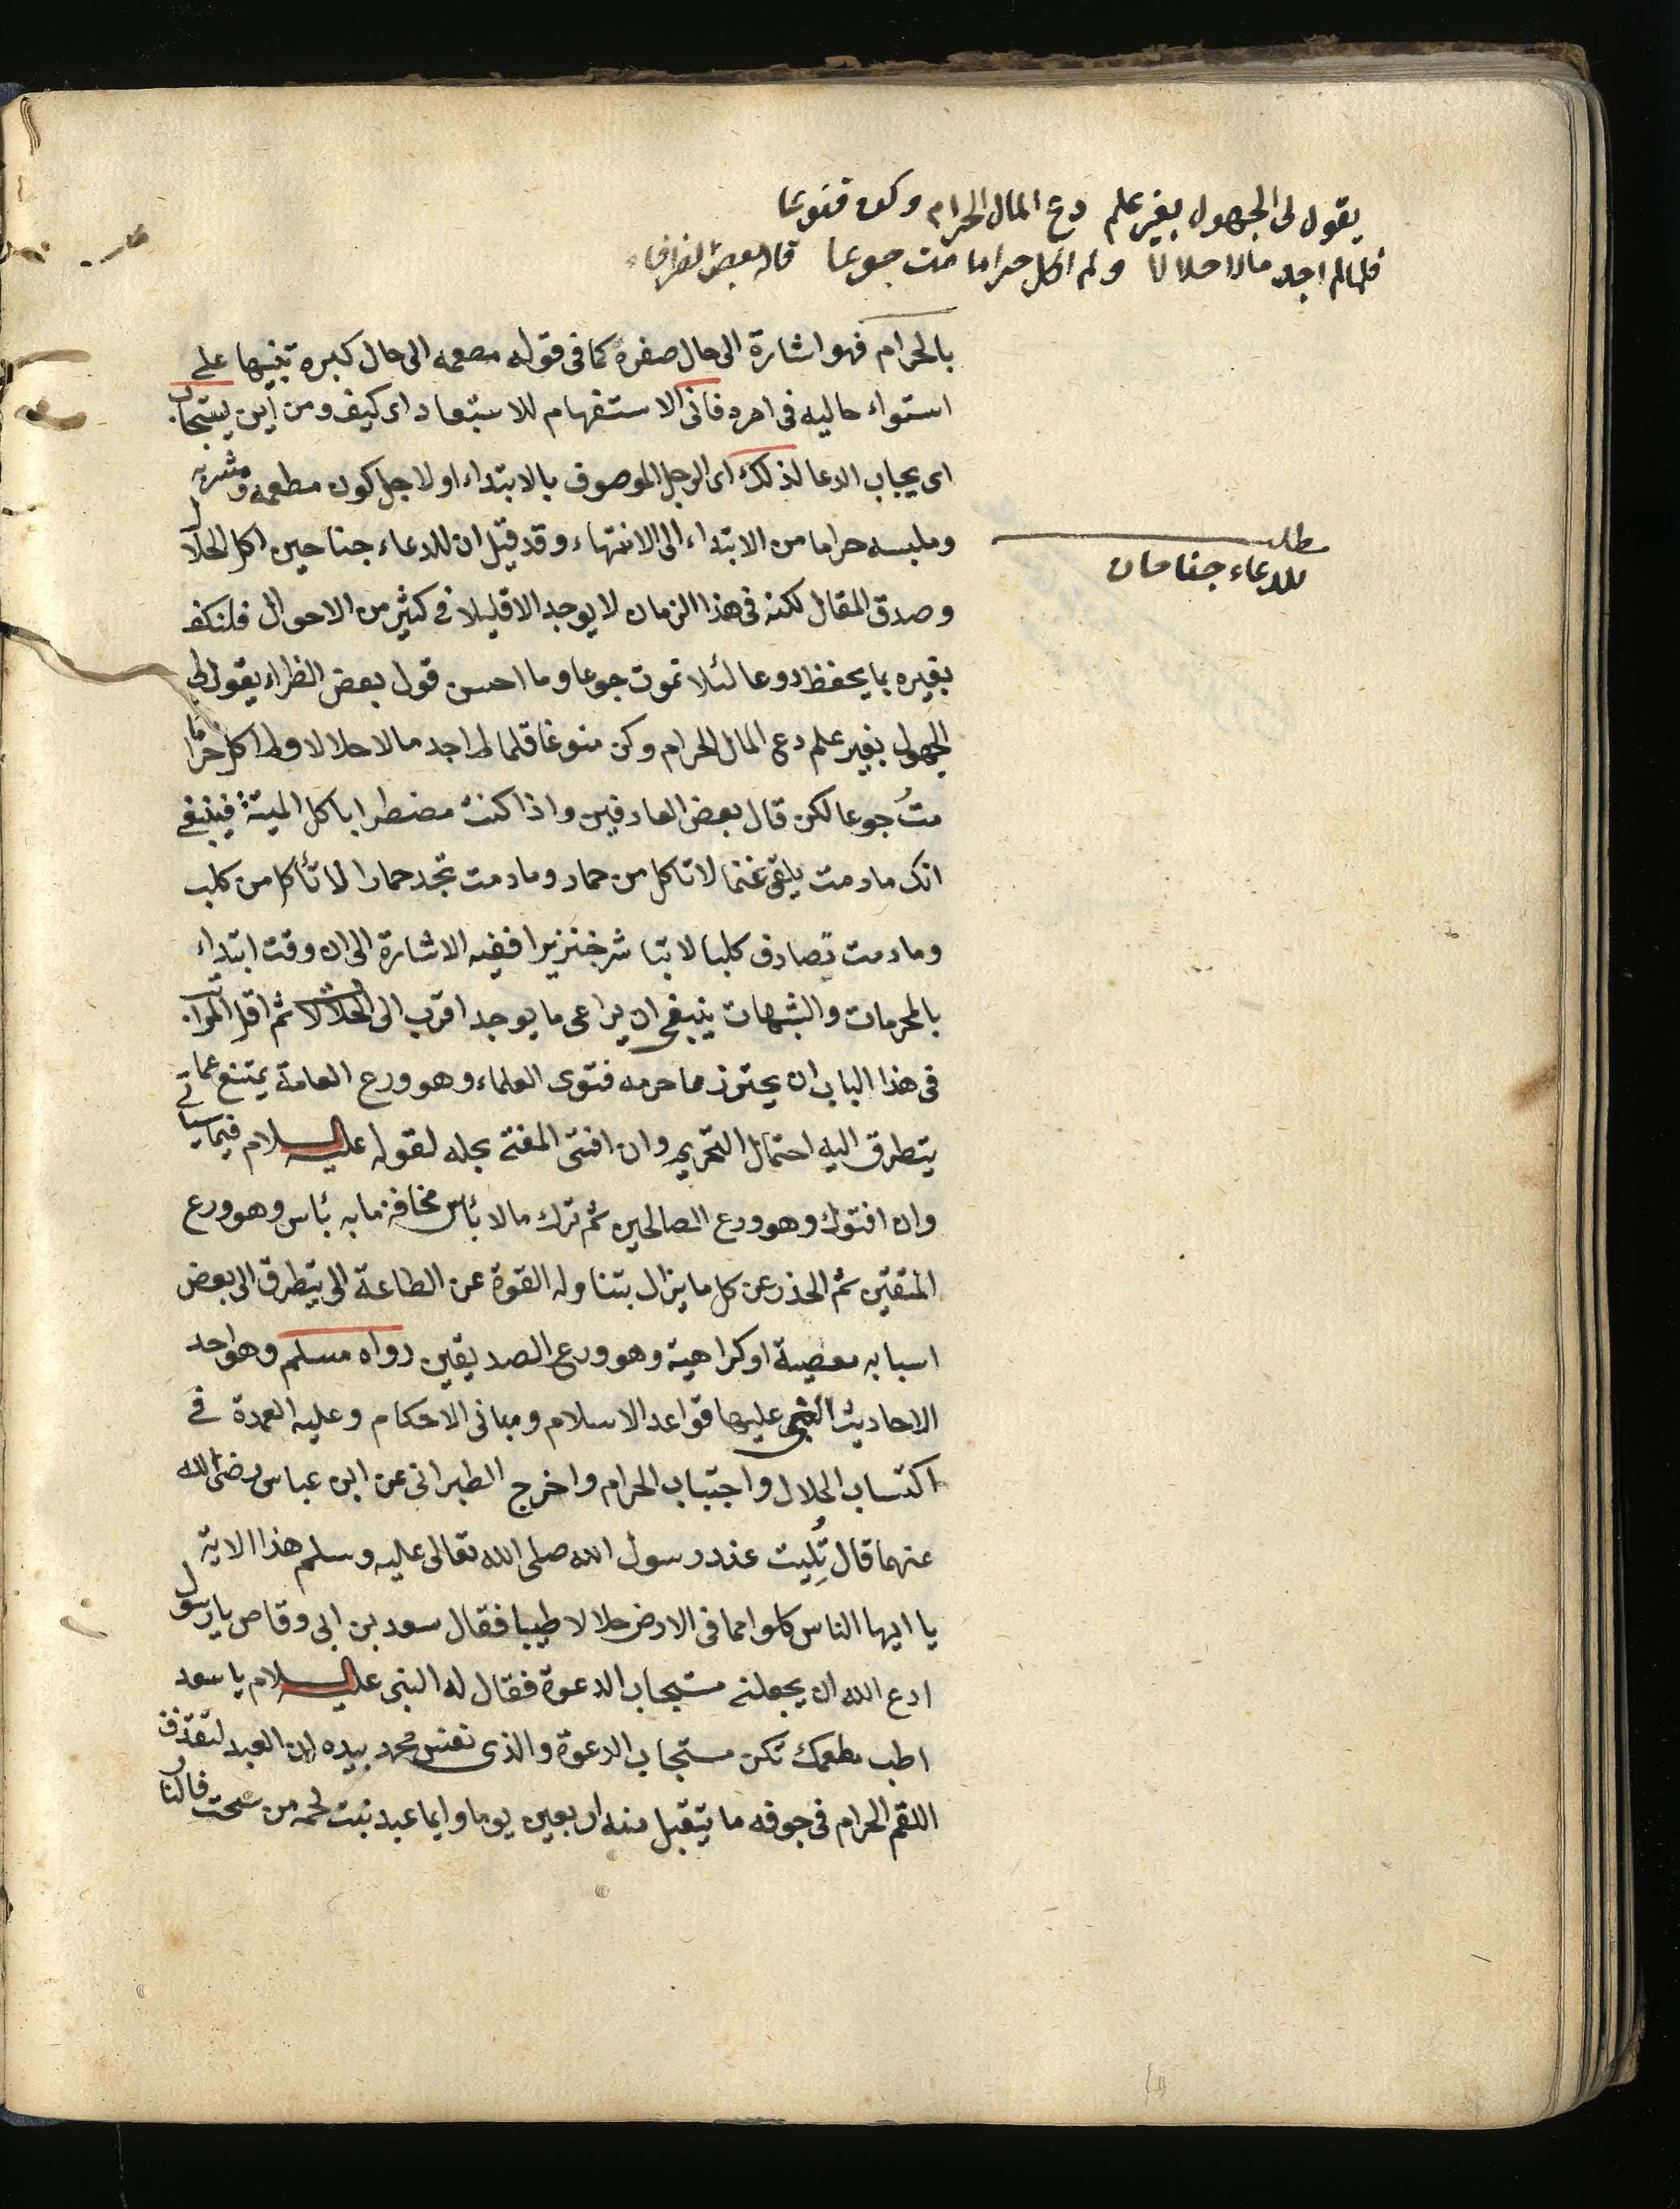 يقول لى الجهول بغير علم دع المال الحرام وكن قنوعا
فلما لم اجد مالا حلالا ولم اكل حراما مت جوعا قاله بعض الظرافاء
بالحرام فهو اشارة الى حال صغره كما فى قوله مصعمه الى حال كبره تنبيها على
استواء حاليه فى امره فانى الاستفهام للاستبعاد اى كيف ومن اين يستجاب
اى يجاب الدعا لذلك اى الرجل الموصوف بالابتداء او لاجل كون مطعمه ومشربه
وملبسه حراما من الابتداء الى الانتهاء وقد قيل ان للدعاء جناحين اكل الحلال
مطلب
للدعاء جناحان
وصدق المقال لكنه فى هذا الزمان لا يوجد الا قليلا فى كثير من الاحوال فلنكف
بغيره بما يحفظ دوعا لئلا تموت جوعا وما احسن قول بعض الظراء يقول لى
الجهول بغير علم دع المال الحرام وكن منوعا فلما لم اجد مالا حلالا ولم اكل حراما
متُ جوعا لكن قال بعض العارفين واذا كنت مضطرا باكل الميتة فينبغى
انك مادمت يلقى غنما لا تاكل من حمار ومادمت تجد حمارا لا تأكل من كلب
ومادمت تصادف كلبا لا تباشر خنزيرا ففيه الاشارة الى ان وقت ابتداء
بالمحرمات والشبهات ينبغى ان يراعى ما يوجد اقرب الى الحلال ثم اقل المراتب
فى هذا الباب ان يحترز مما حرمه فتوى العلماء وهو ورع العامة يمتنع عما
يتطرق اليه احتمال التحريم وان افتى المفتى بحله لقوله عليه السلام فيما سياتى
وان افتوك وهو ورع الصالحين ثم ترك مالا بئاس مخافة ما به بئاس وهو ورع
المتقين ثم الحذر عن كل ما يزال بتناوله القوة عن الطاعة الى يتطرق الى بعض
اسبابه معصية او كراهية وهو ورع الصديقين رواه مسلم وهو احد
الاحاديث التى عليها قواعد الاسلام ومبانى الاحكام وعليه العمدة فى
اكتساب الحلال واجتباب الحرام واخرج الطبرانى عن ابن عباس رضى الله
عنهما قال تُلِيت عند رسول الله صلى الله تعالى عليه وسلم هذا الاية
يا ايها الناس كلوا مما فى الارض حلالا طيبا فقال سعد بن ابى وقاص يا رسول
ادع الله ان يجعلنى مستجاب الدعوة فقال له النبى عليه السلام يا سعد
اطب مطعمك تكن مستجاب الدعوة والذى نفس محمد بيده ان العبد لتقذف
اللقم الحرام فى جوفه ما يتقبل منه اربعين يوما وايما عبد نبت لحمه من سحت فالنا